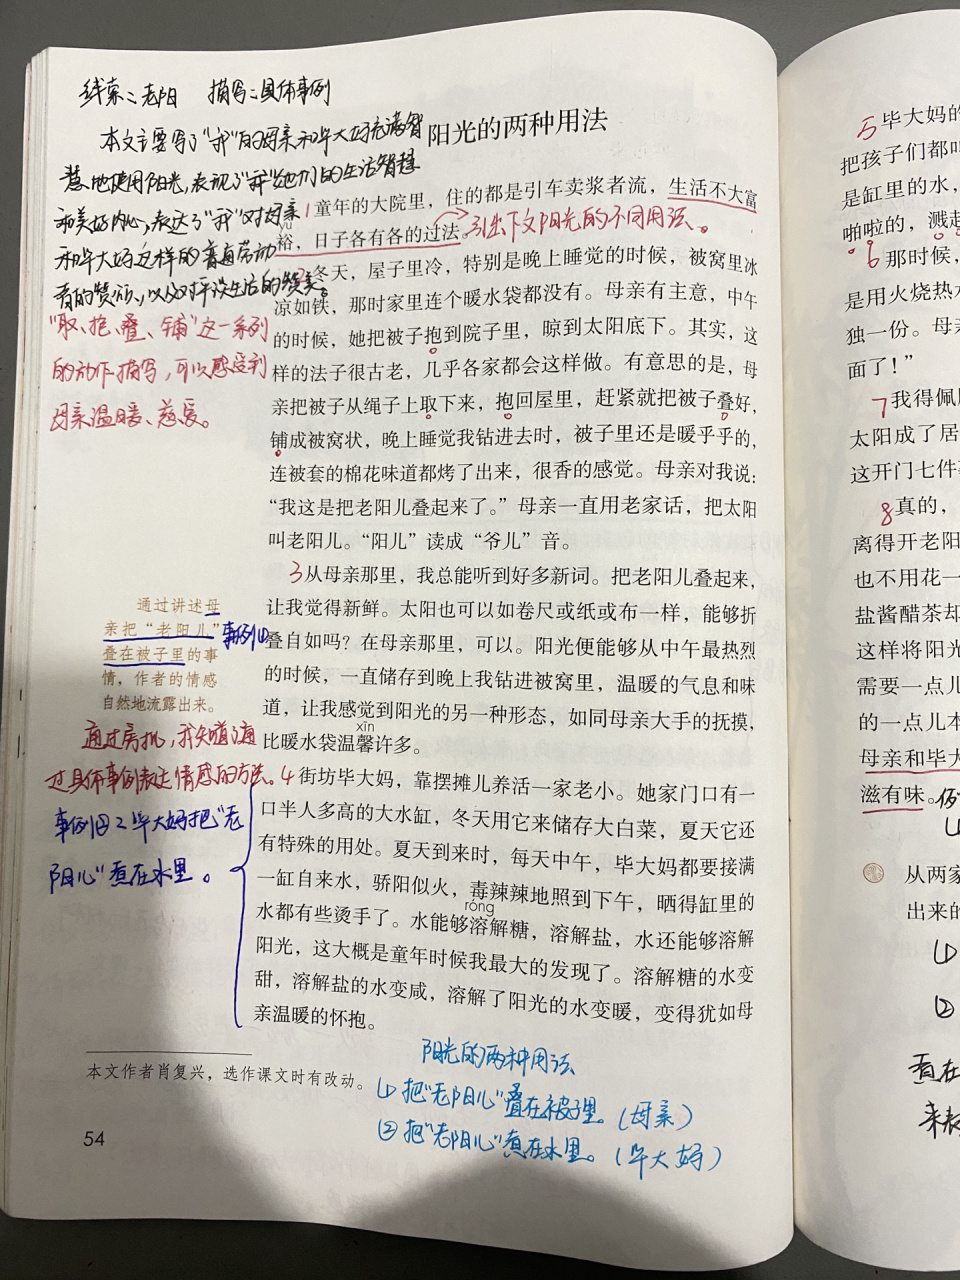 线索：老阳 描写：具体事例
本文主要写了“我”的母亲和毕大妈充满智
慧地使用阳光，表现了“我”她们的生活智慧
和美好内心，表达了“我”对母亲
和毕大妈这样的普通劳动
者的赞颂，以及对平淡生活的赞美。
阳光的两种用法
1童年的大院里，住的都是引车卖浆者流，生活不大富
yù
裕，日子各有各的过法。引出下文阳光的不同用法。
2冬天，屋子里冷，特别是晚上睡觉的时候，被窝里冰
凉如铁，那时家里连个暖水袋都没有。母亲有主意，中午
的时候，她把被子抱到院子里，晾到太阳底下。其实，这
样的法子很古老，几乎各家都会这样做。有意思的是，母
亲把被子从绳子上取下来，抱回屋里，赶紧就把被子叠好，
铺成被窝状，晚上睡觉我钻进去时，被子里还是暖乎乎的，
连被套的棉花味道都烤了出来，很香的感觉。母亲对我说：
“我这是把老阳儿叠起来了。”母亲一直用老家话，把太阳
叫老阳儿。“阳儿”读成“爷儿”音。
“取、抱、叠、铺”这一系列
的动作描写，可以感受到
母亲温暖、慈爱。
3从母亲那里，我总能听到好多新词。把老阳儿叠起来，
让我觉得新鲜。太阳也可以如卷尺或纸或布一样，能够折
叠自如吗？在母亲那里，可以。阳光便能够从中午最热烈
的时候，一直储存到晚上我钻进被窝里，温暖的气息和味
道，让我感觉到阳光的另一种形态，如同母亲大手的抚摸，
xīn
比暖水袋温馨许多。
通过讲述母
亲把“老阳儿”
叠在被子里的事
情，作者的情感
自然地流露出来。
事例①
通过旁批，我知道了通
过具体事例表达情感的方法。
4街坊毕大妈，靠摆摊儿养活一家老小。她家门口有一
口半人多高的大水缸，冬天用它来储存大白菜，夏天它还
有特殊的用处。夏天到来时，每天中午，毕大妈都要接满
一缸自来水，骄阳似火，毒辣辣地照到下午，晒得缸里的
róng
水都有些烫手了。水能够溶解糖，溶解盐，水还能够溶解
阳光，这大概是童年时候我最大的发现了。溶解糖的水变
甜，溶解盐的水变咸，溶解了阳光的水变暖，变得犹如母
亲温暖的怀抱。
事例②：毕大妈把“老
阳儿”煮在水里。
本文作者肖复兴，选作课文时有改动。
54
阳光的两种用法
① 把“老阳儿”叠在被子里。（母亲）
② 把“老阳儿”煮在水里。（毕大妈）
5毕大妈的
把孩子们都叫
是缸里的水，
啪啦的，溅起
6那时候，
是用火烧热水
独一份。母亲
面了！”
7我得佩服
太阳成了居
这开门七件事
8真的，
离得开老阳
也不用花一
盐酱醋茶却
这样将阳光
需要一点儿
的一点儿本
母亲和毕大
滋有味。
从两家
出来的
①
②
煮在
来表